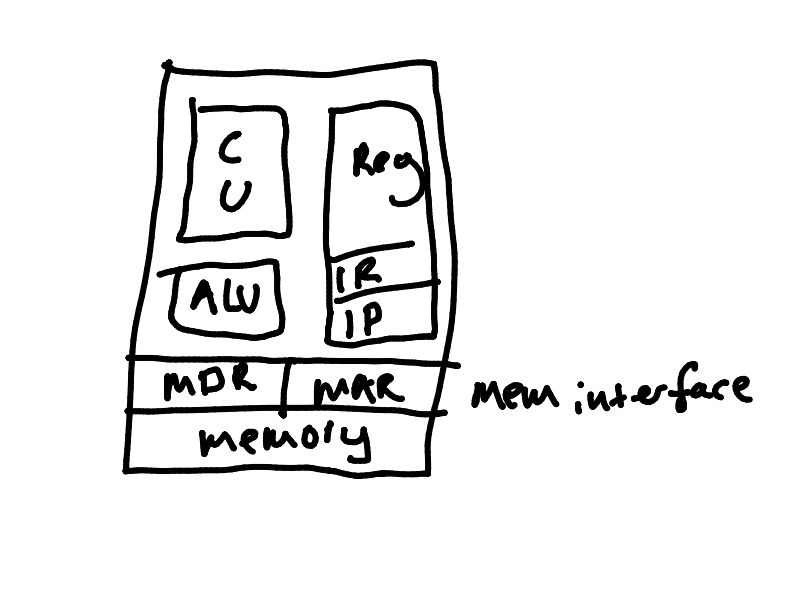 C
U
Reg
IR
ALU
IP
MDR
MAR
mem interface
memory